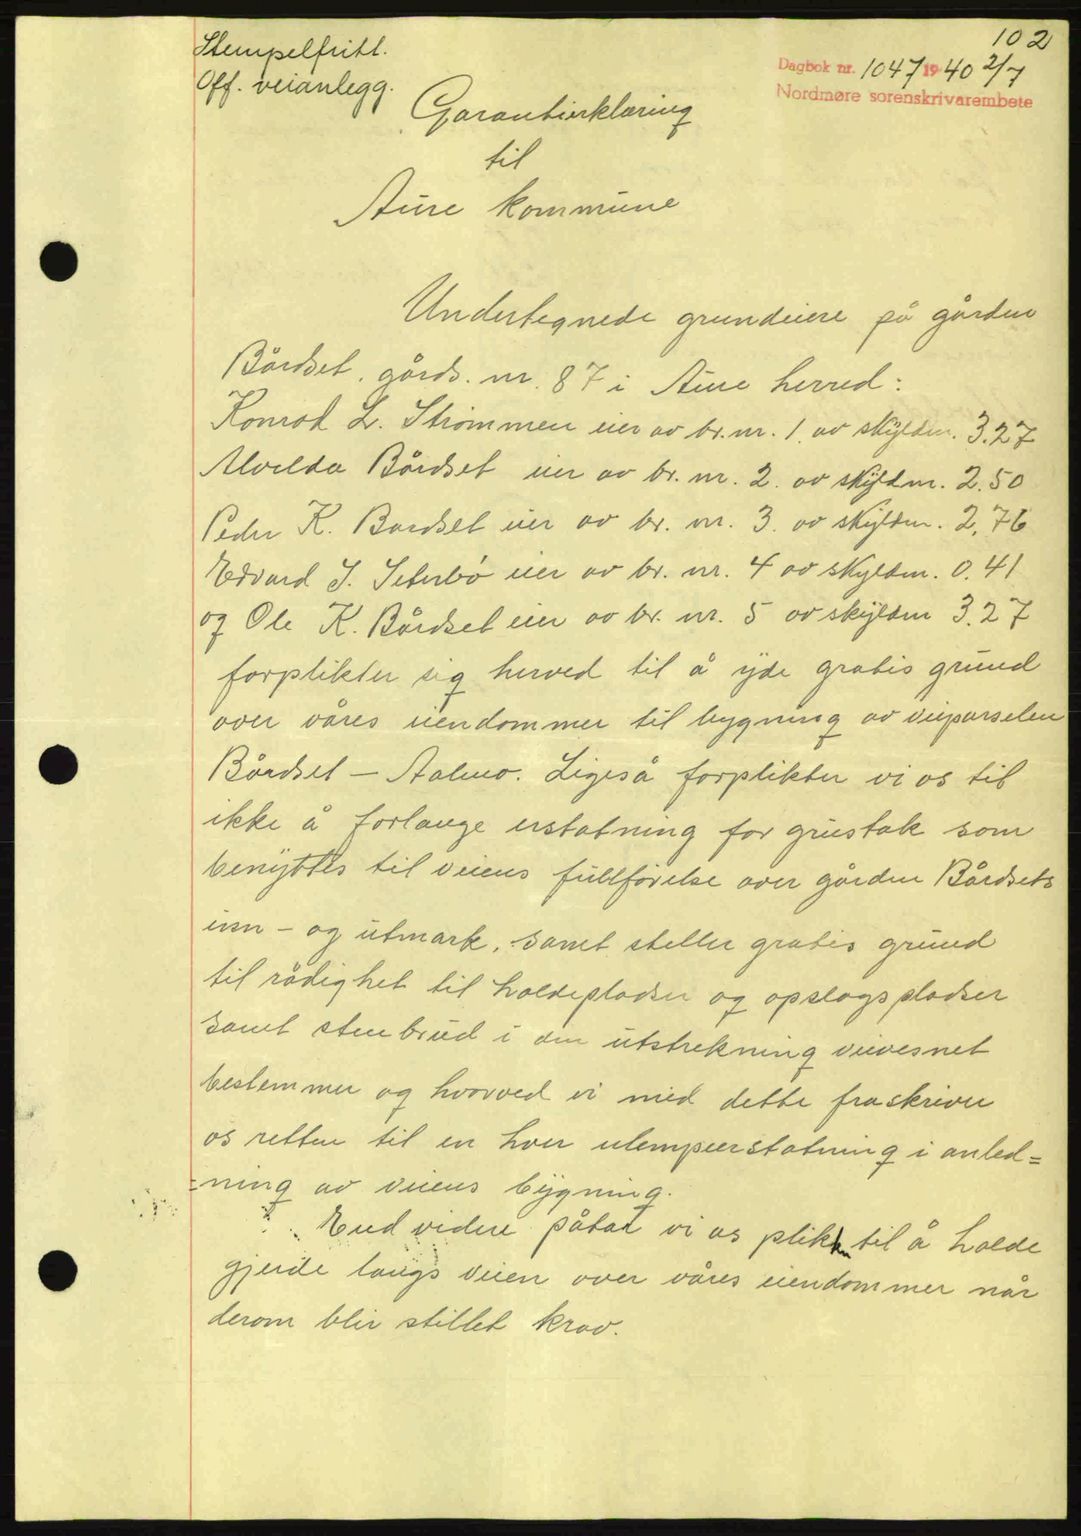 102
Stempelfritt.
Off. veianlegg.
Dagbok nr. 1047 1940 2/7
Nordmøre sorenskrivarembete
Garantierklæring
til
Aure kommune
Undertegnede grundeiere på gården
Bårdset, gårds. nr. 87 i Aure herred:
Konrad L. Strømmen eier av br. nr. 1. av skyldm. 3.27
Alvilda Bårdset eier av br. nr. 2. av skyldm. 2.50
Peder K. Bardset eier av br. nr. 3. av skyldm. 2,76
Edvard J. Seterbø eier av br. nr. 4 av skyldm. 0.41
og Ole K. Bårdset eier av br. nr. 5 av skyldm 3.27
forplikter sig herved til å yde gratis grund
over våres eiendommer til bygning av veiparselen
Bårdset – Aalmo. Ligeså forplikter vi os til
ikke å forlange erstatning for grustak som
benyttes til veiens fullførelse over gården Bårdsets
inn- og utmark, samt stiller gratis grund
til rådighet til holdepladser og opslagspladser
samt stenbrud i den utstrekning veivesnet
bestemmer og hvorved vi med dette fraskriver
os retten til en hver ulempeerstatning i anled=
=ning av veiens bygning.
End videre påtar vi os plikten til å holde
gjerde langs veien over våres eiendommer når
derom blir stillet krav.